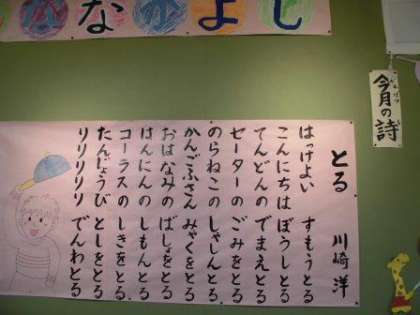 ななかよし
今月の詩
とる　川崎 洋
はっけよい　すもうとる
こんにちは　ぼうしとる
てんどんの　でまえとる
セーターの　ごみをとる
のらねこの　しゃしんとる
かんごふさん　みゃくをとる
おはなみの　ばしょをとる
はんにんの　しもんとる
コーラスの　しきをとる
たんじょうび　としをとる
リリリリリ　でんわとる